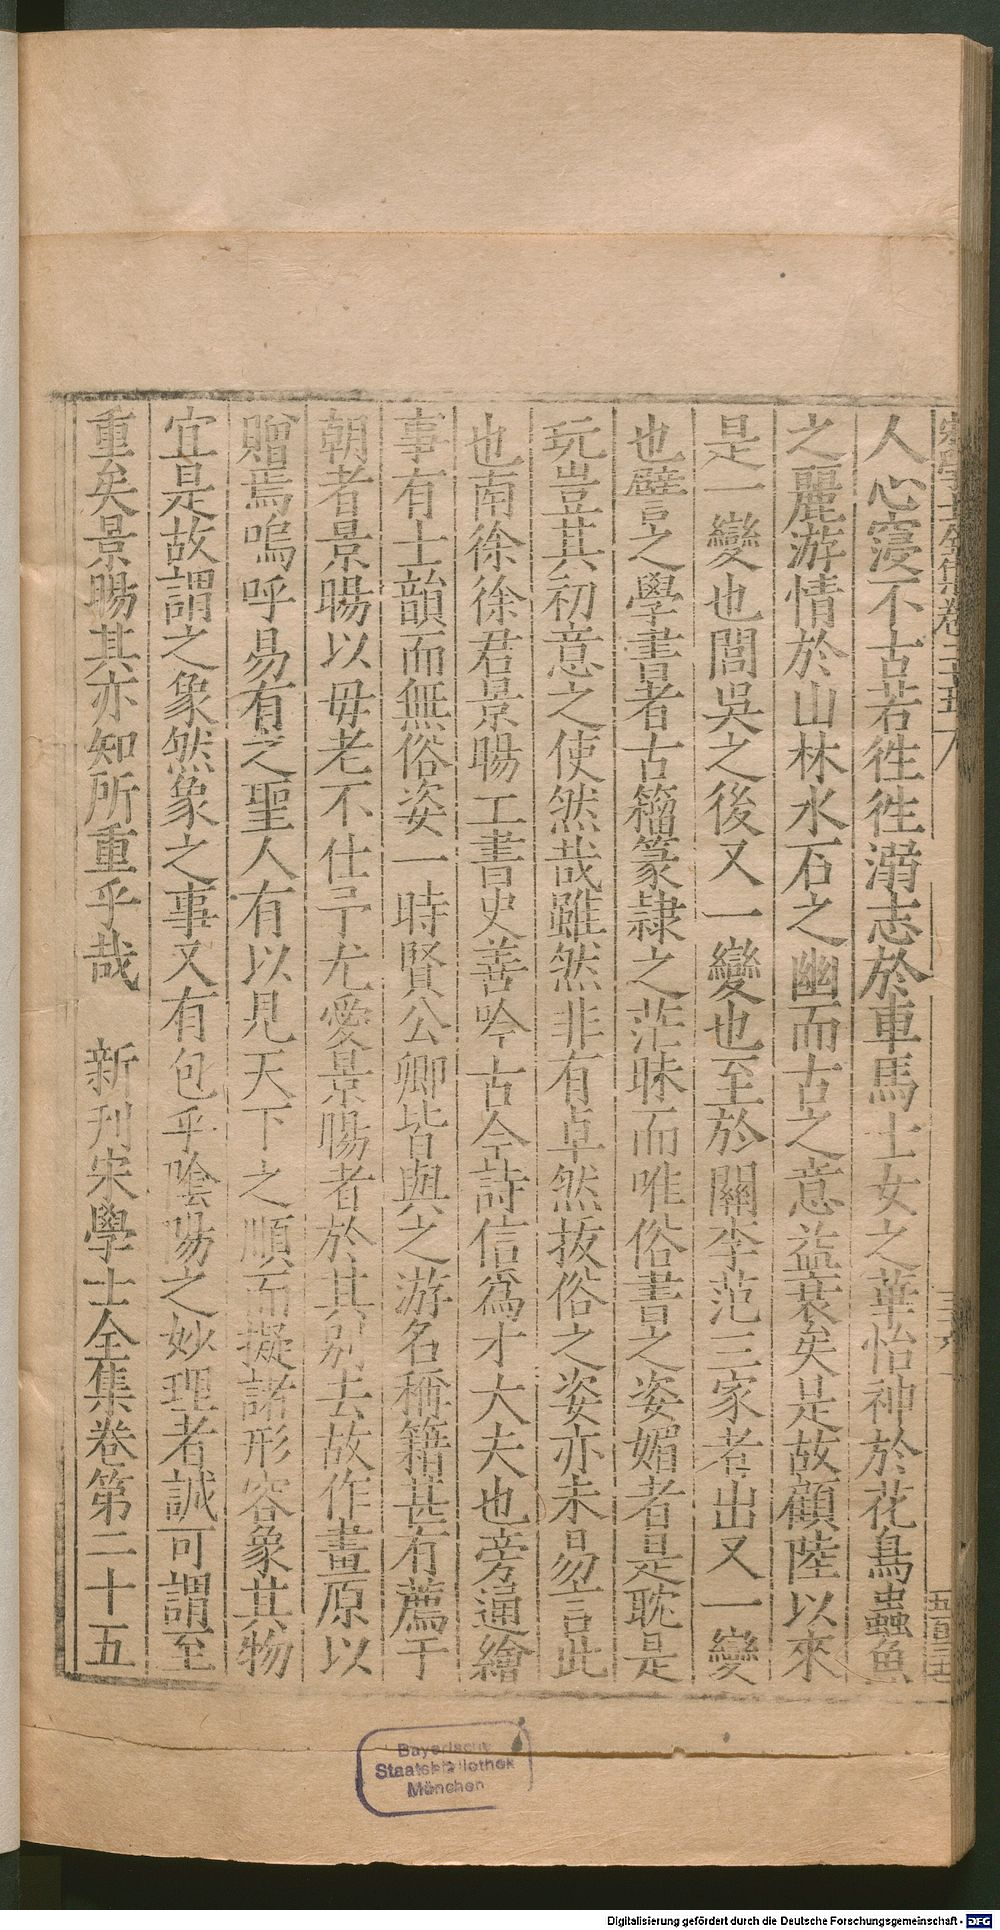 人心寖不古若徃徃溺志於車馬士女之華怡神於花鳥蟲魚
之麗游情於山林水石之幽而古之意益衰矣是故顧陸以來
是一變也閻吳之後又一變也至於關李范三家者出又一變
也譬之學書者古籀篆隸之茫昧而唯俗書之姿媚者是耽是
玩豈其初意之使然哉雖然非有卓然拔俗之姿亦未易言此
也南徐徐君景暘工書史善吟古今詩信爲才大夫也旁通繪
事有士韻而無俗姿一時賢公卿皆與之游名稱籍甚有薦于
朝者景暘以毋老不仕予尤愛景暘者於其别去故作畫原以
贈焉嗚呼易有之聖人有以見天下之順而擬諸形容象其物
宜是故謂之象然象之事又有包乎陰陽之妙理者誠可謂至
重矣景暘其亦知所重乎哉　新刊宋學士全集卷第二十五
Bayerische
Staatsbibliothek
München
Digitalisierung gefördert durch die Deutsche Forschungsgemeinschaft - DFG